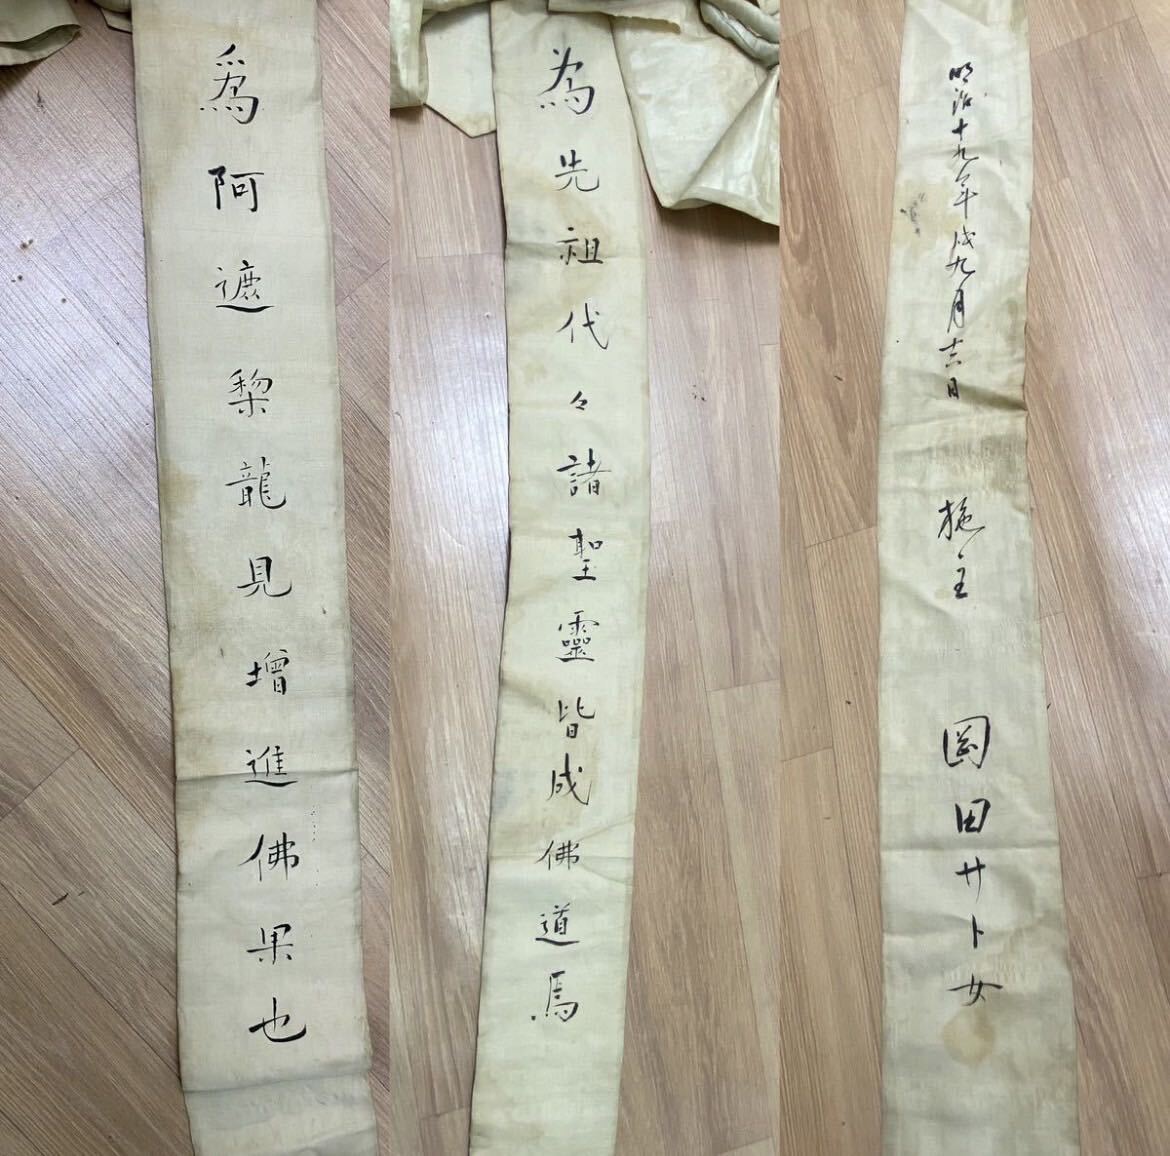 爲阿遮棃龍見增進佛果也
為先祖代々諸聖靈皆成佛道焉
明治十九年戌九月吉日 施主 岡田サト女